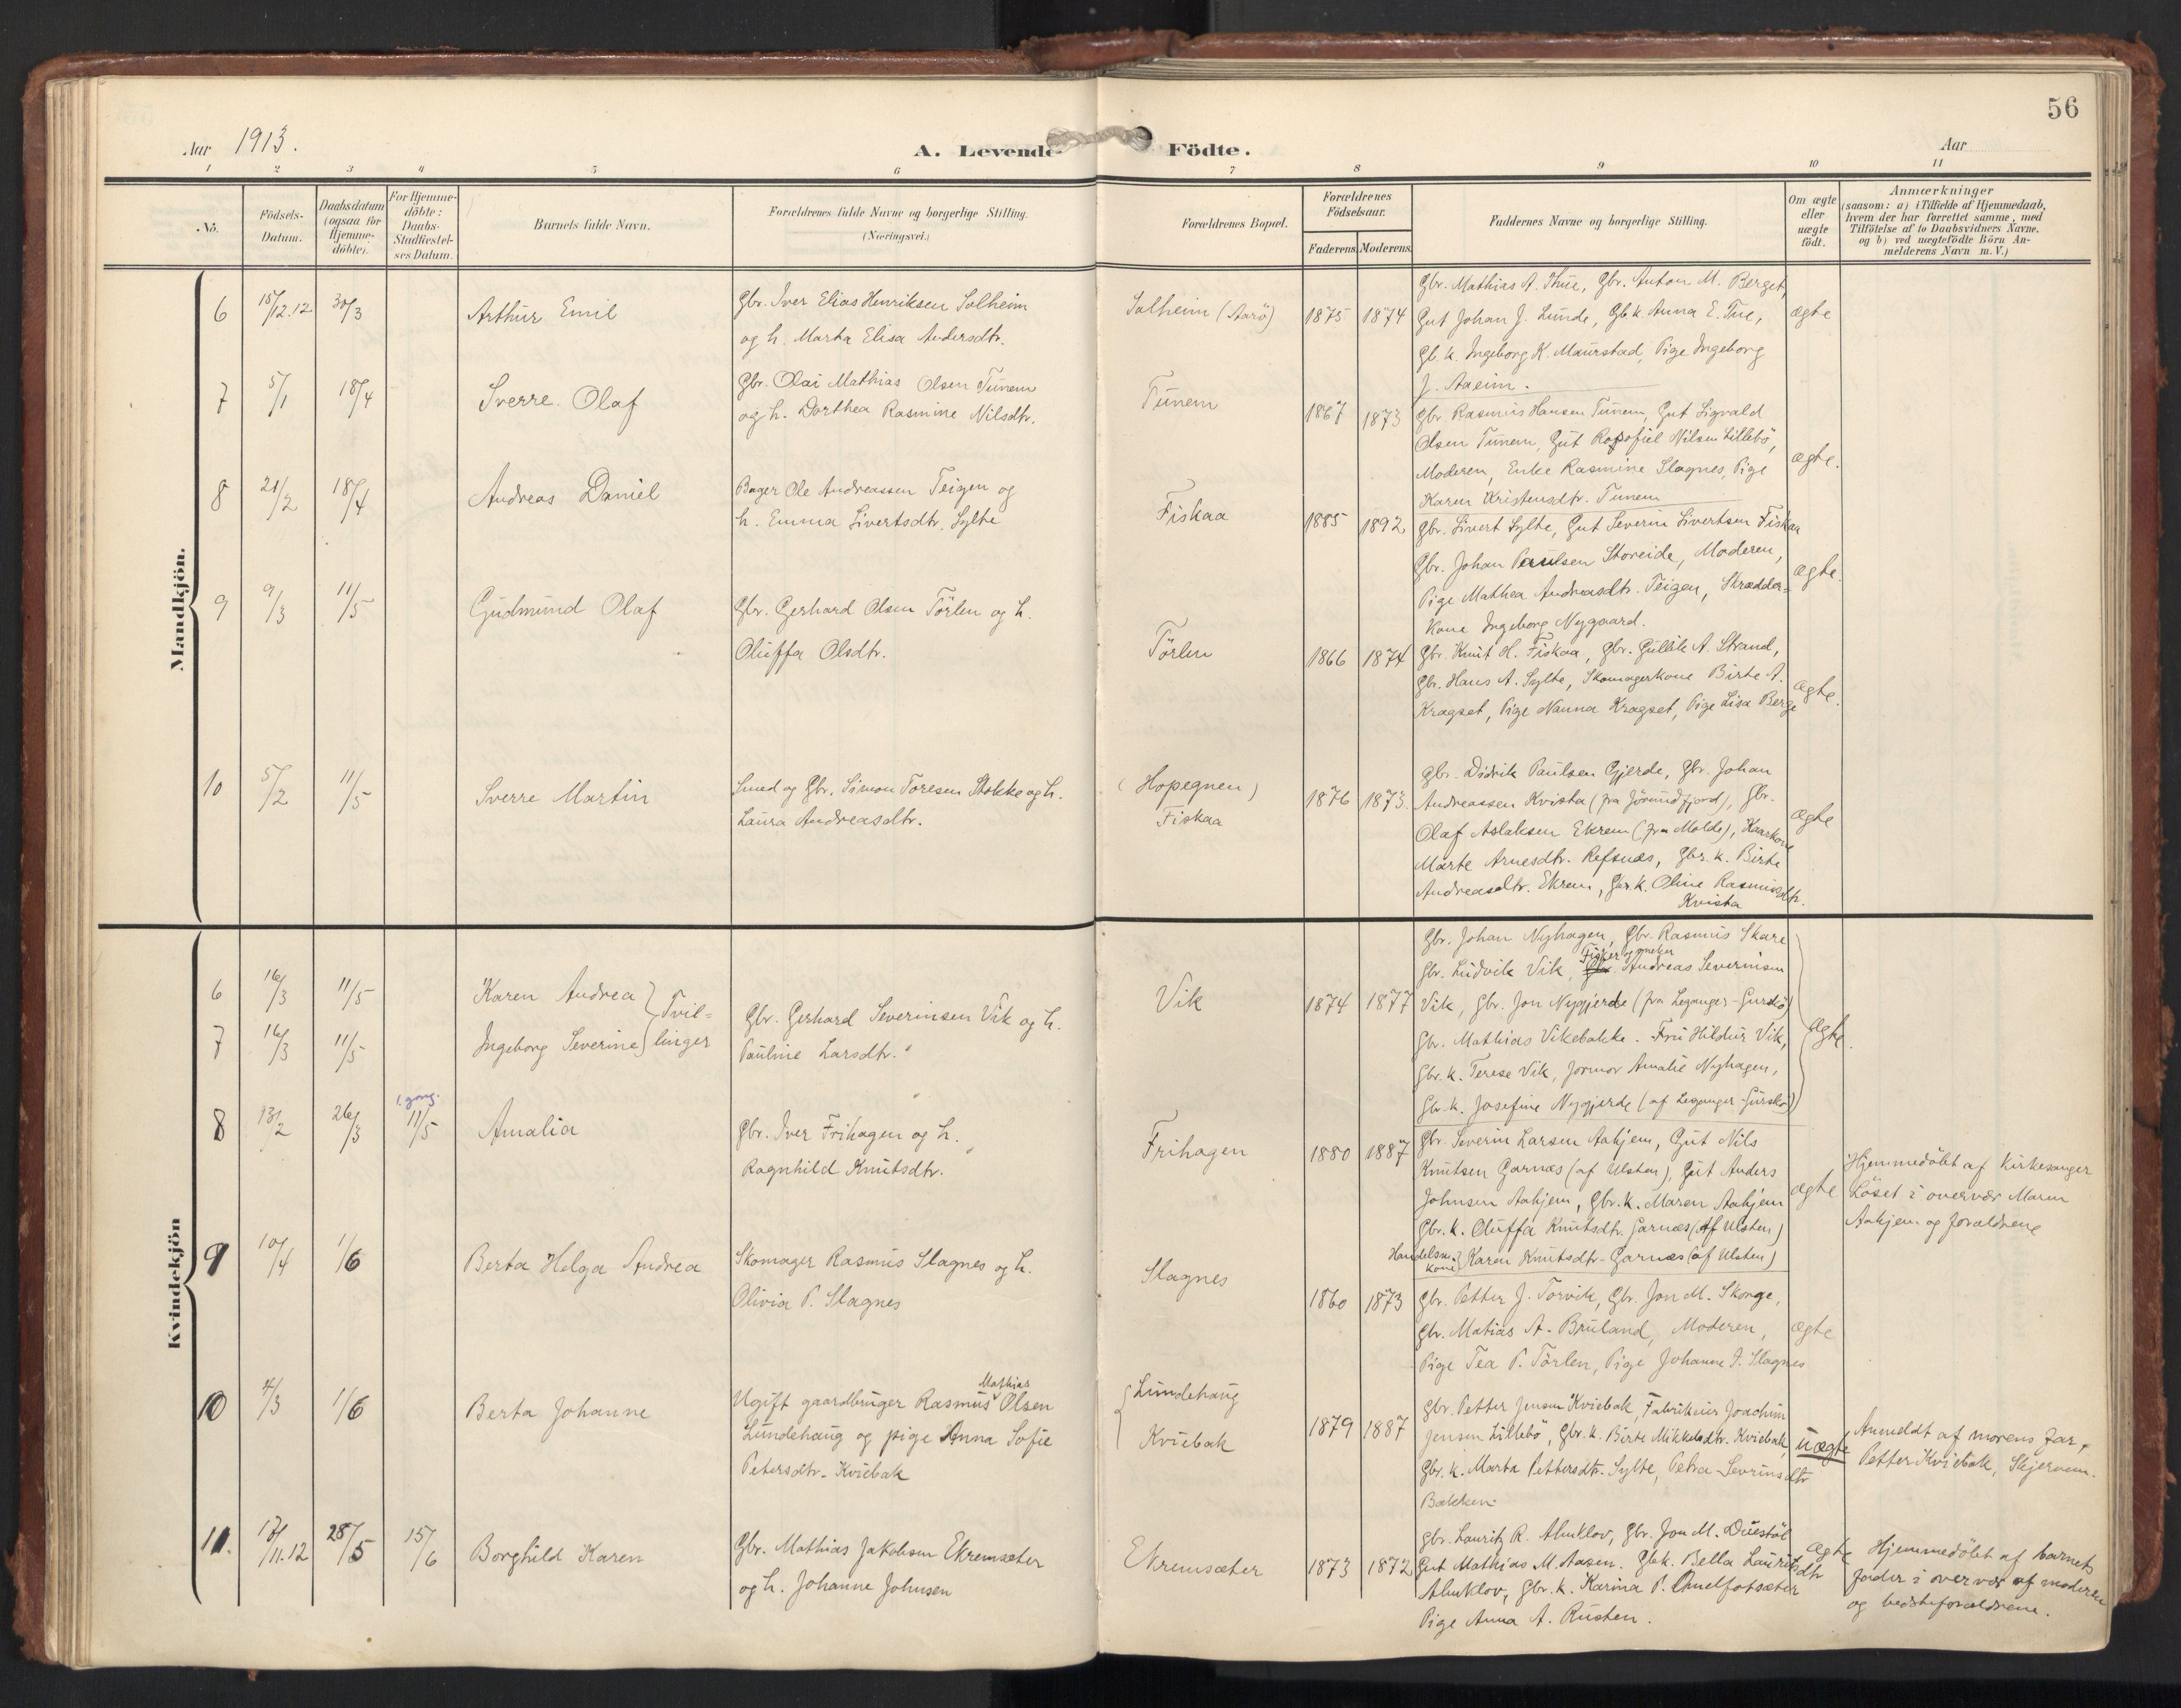 56
Aar 1913.
A. Levende Födte.
Aar
1 2 3 4 5 6 7 8 9 10 11
No.
Födsels-Datum.
Daabsdatum (ogsaa for Hjemme-döbte).
For Hjemme-döbte: Daabs-Stadfæstel-ses Datum.
Barnets fulde Navn.
Forældrenes fulde Navne og borgerlige Stilling. (Næringsvei.)
Forældrenes Bopæl.
Forældrenes Födselsaar.
Faderens Moderens
Faddernes Navne og borgerlige Stilling.
Om ægte eller uægte födt.
Anmærkninger
(saasom: a) i Tilfælde af Hjemmedaab,
hvem der har forrettet samme, med
Tilföielse af to Daabsvidners Navne,
og b) ved uægtefödte Börn An-
melderens Navn m. V.)
Mandkjön.
6 15/12.12 30/3 Arthur Emil
Gbr. Iver Elias Henriksen Solheim
og h. Marta Elisa Andersdtr.
Solheim (Aarö) 1875 1874
Gbr. Mathias A. Thue, Gbr. Anton M. Berget,
Gut Johan J. Lunde, Gb.k. Anna E. Tue,
Gb.k. Ingeborg K. Maurstad, Pige Ingeborg
J. Aaeim.
ægte
7 5/1 18/4 Sverre Olaf
Gbr. Olai Mathias Olsen Tunem
og h. Dorthea Rasmine Nilsdtr.
Tunem 1867 1873
Gbr. Rasmus Hansen Tunem, Gut Sigvald
Olsen Tunem, Gut Nilsen Lillebö,
Moderen, Enke Rasmine Slagnes, Pige
Karen Kristensdtr. Tunem
ægte.
8 21/2 18/4 Andreas Daniel
Bager Ole Andreassen Teigen og
h. Emma Sivertsdtr. Sylte
Fiskaa 1885 1892
Gbr. Sivert Sylte, Gut Severin Sivertsen Fiskaa
Gbr. Johan Paulsen Storeide, Moderen,
Pige Mathea Andreasdtr. Teigen, Skrædder=
kone Ingeborg Nygaard.
ægte.
9 9/3 11/5 Gudmund Olaf
Gbr. Gerhard Olsen Törlen og h.
Oluffa Olsdtr.
Törlen 1866 1874
Gbr. Knut H. Fiskaa, Gbr. Gullik A. Strand,
Gbr. Hans A. Sylte, Skomagerkone Birte A.
Kragset, Pige Nanna Kragset, Pige Lisa Berge
ægte.
10 5/2 11/5 Sverre Martin
Smed og Gbr. Simon Toresen Stokke og h.
Laura Andreasdtr.
(Hopegnen)
Fiskaa
1876 1873.
Gbr. Didrik Paulsen Gjerde, Gbr. Johan
Andreassen Kvista (fra Jörundfjord), Gbr.
Olaf Aslaksen Ekrem (fra Molde), Kaarkone
Marte Arnesdtr. Refsnæs, Gbr. k. Birte
Andreasdtr. Ekrem, Gbr.k. Oline Rasmusdtr.
Kvista
ægte
Kvindekjön
6 16/3 11/5 Karen Andrea
7 16/3 11/5 Ingeborg Severine
Tvil=
linger
Gbr. Gerhard Severinsen Vik og h.
Pauline Larsdtr.
Vik 1874 1877
Gbr. Johan Nyhagen, Gbr. Rasmus Skare
Gbr. Ludvik Vik, Gbr. Andreas Severinsen
Vik, Gbr. Jon Nygjerde (fra Leganger-Gurskö)
Gbr. Mathias Vikebakke. Fru Hildur Vik,
Gbr.k. Terese Vik, Jormor Amalie Nyhagen,
Gbr.k. Josefine Nygjerde (af Leganger-Gurskö)
ægte.
8 13/2 26/3 1. gong. 11/5 Amalia
Gbr. Iver Frihagen og h.
Ragnhild Knutsdtr.
Frihagen 1880 1887
Gbr. Severin Larsen Aahjem, Gut Nils
Knutsen Garnæs (af Ulsten), Gut Anders
Johnsen Aahjem, Gbr.k. Maren Aahjem
Gbr.k. Oluffa Knutsdtr. Garnæs (af Ulsten)
Handelsm. kone Karen Knutsdtr-Garnæs (af Ulsten)
ægte
Hjemmedöbt af Kirkesanger
Löset i overvær Maren
Aahjem og forældrene
9 10/4 1/6 Berta Helga Andrea
Skomager Rasmus Slagnes og h.
Olivia P. Slagnes
Slagnes 1860 1873
Gbr. Petter J. Torvik, Gbr. Jon M. Skorge,
Gbr. Matias A. Bruland, Moderen,
Pige Tea P. Törlen, Pige Johanne J. Slagnes
ægte
10 4/3 1/6 Berta Johanne
Mathias
Ugift gaardbruger Rasmus Olsen
Lundehaug og pige Anna Sofie
Petersdtr. Kviebak
Lundehaug
Kviebak
1879 1887
Gbr. Petter Jensen Kviebak, Fabrikeier Joachim
Jensen Lillebö, Gbr.k. Birte Mikkelsdtr. Kviebak,
Gbr.k. Marta Pettersdtr. Sylte, Petra Sevrinsdtr
Bakken
uægte
Anmeldt af morens far,
Petter Kviebak, Skjervem.
11. 17/11.12 28/5 15/6 Borghild Karen
Gbr. Mathias Jakobsen Ekremsæter
og h. Johanne Johnsen
Ekremsæter 1873 1872
Gbr. Lauritz R. Almklov, Gbr. Jon M. Duestöl
Gut Mathias M. Aasen. Gb.k. Bella Lauritsdtr
Almklov, Gbr.k. Karina P.
Pige Anna A. Rusten.
ægte
Hjemmedöbt af barnets
fader i overvær af moderen
og bedsteforældrene.